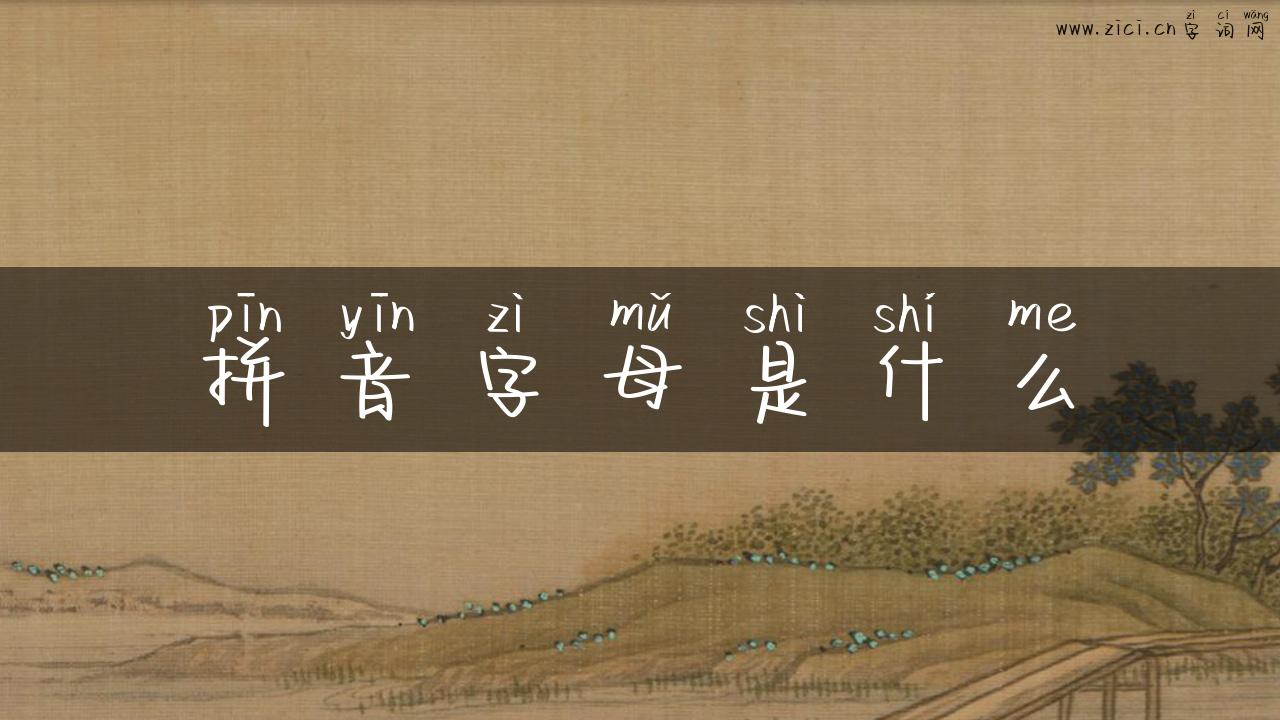 zì cí wǎng
www.zici.cn字词网
pīn yīn zì mǔ shì shí me
拼音字母是什么